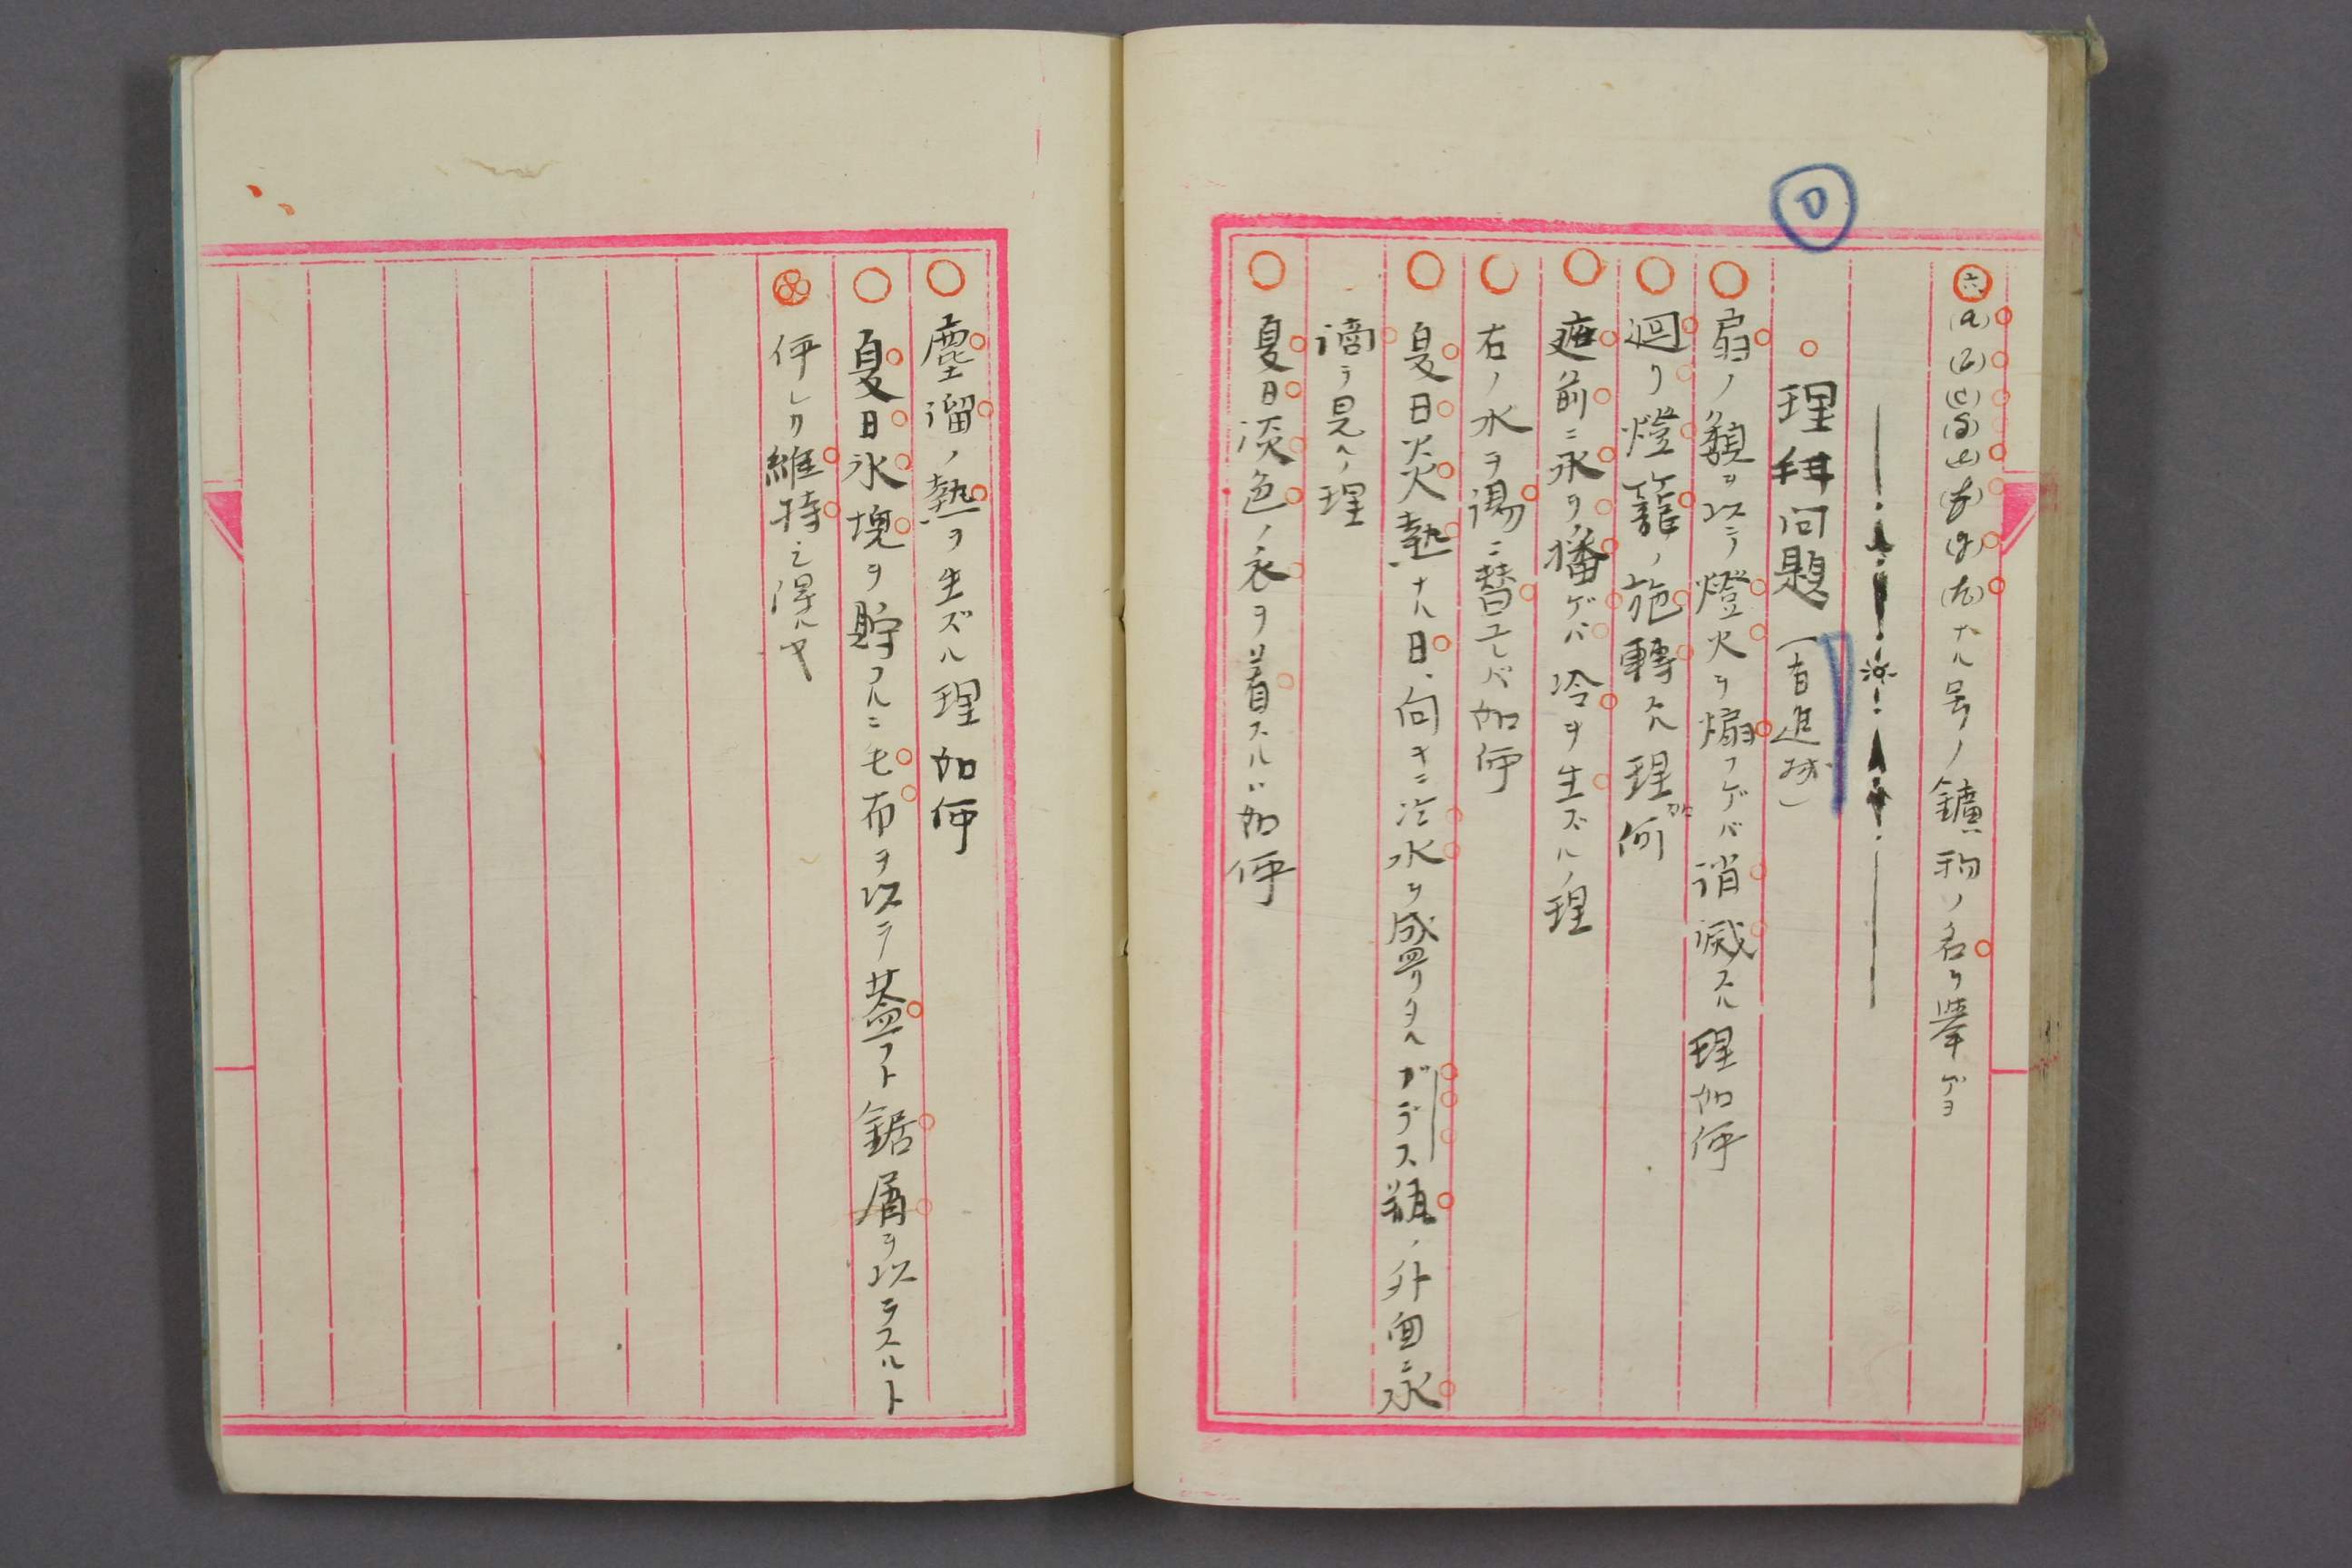 六 (a) (b) (c) (d) (e) (f) (g) (h) ナル号ノ鑛物ノ名ヲ挙ゲヨ
理科問題
扇ノ類ヲ以テ燈火ヲ煽ケバ消滅スル理如何
廻リ燈籠ノ施轉スル理如何
庭前ニ水ヲ播ゲバ冷ヲ生ズルノ理
右ノ水ヲ湯ニ替エレバ如何
夏日炎熱ナル日、向キニ冷水ヲ盛リタルガラス瓶ノ外面ニ水
滴ヲ見ヘノ理
夏日淡色ノ衣ヲ着スルハ如何
塵溜ノ熱ヲ生ズル理如何
夏日氷塊ヲ貯フルニ毛布ヲ以テ蓋フト鋸屑ヲ以テスルト
何レカ維持シ得ルヤ